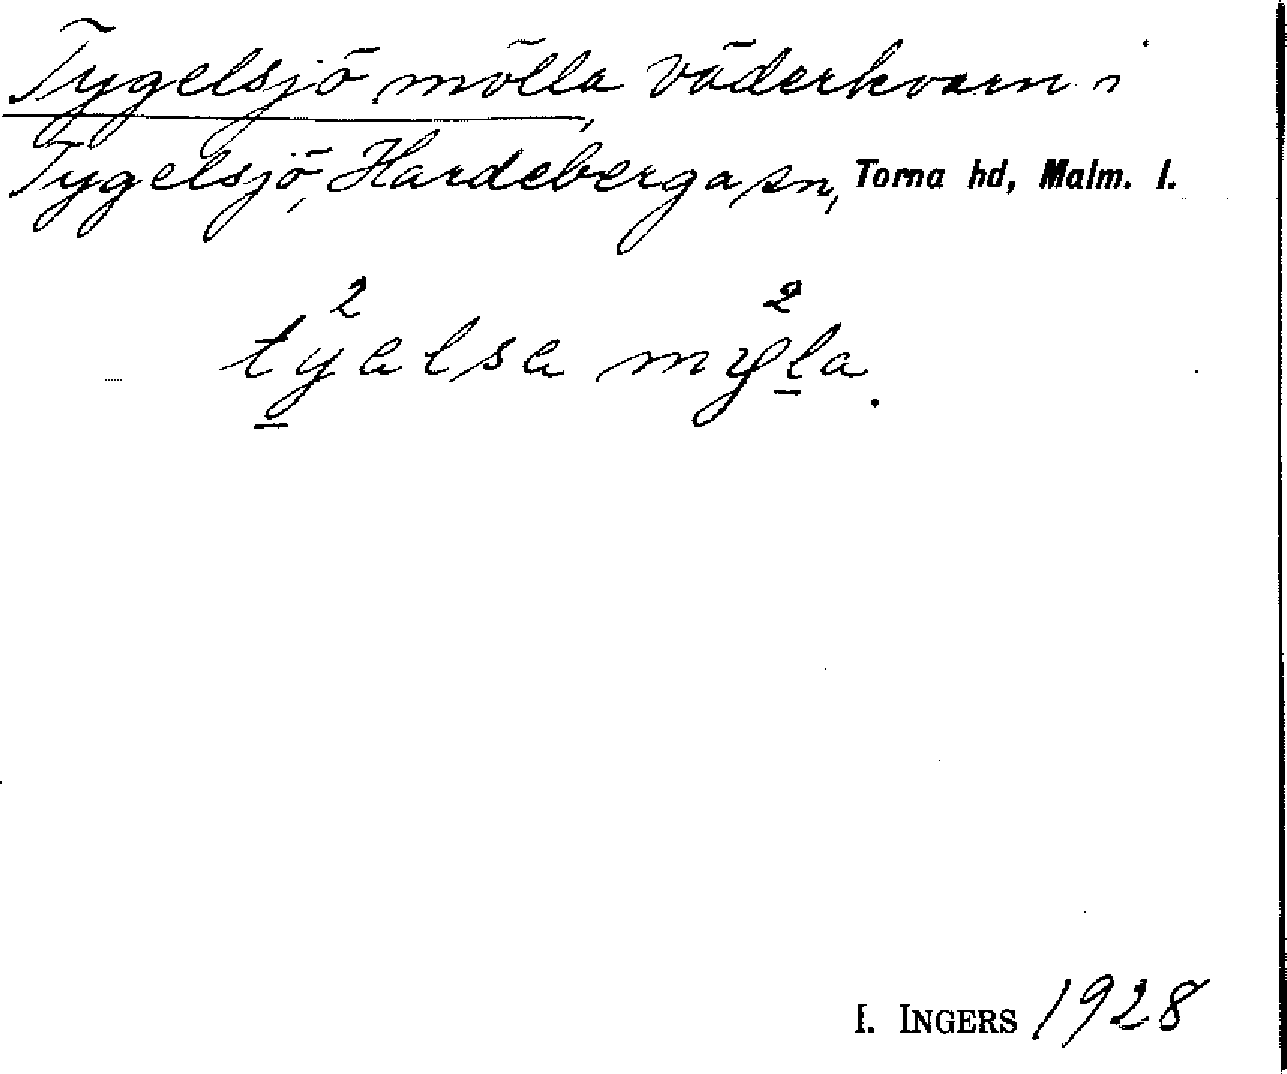 Tygelsjö mölla, väderkvarn i
Tygelsjö, Hardeberga sn, Torna hd, Malm. l.
I. INGERS 1928